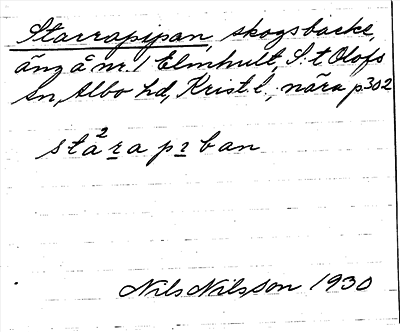 Starrapipan, skogsbacke,
äng å nr. 1 Elmhult, S:t Olofs
sn, Albo hd, Krist. l., nära p 302
sta²rapıban
Nils Nilsson 1930